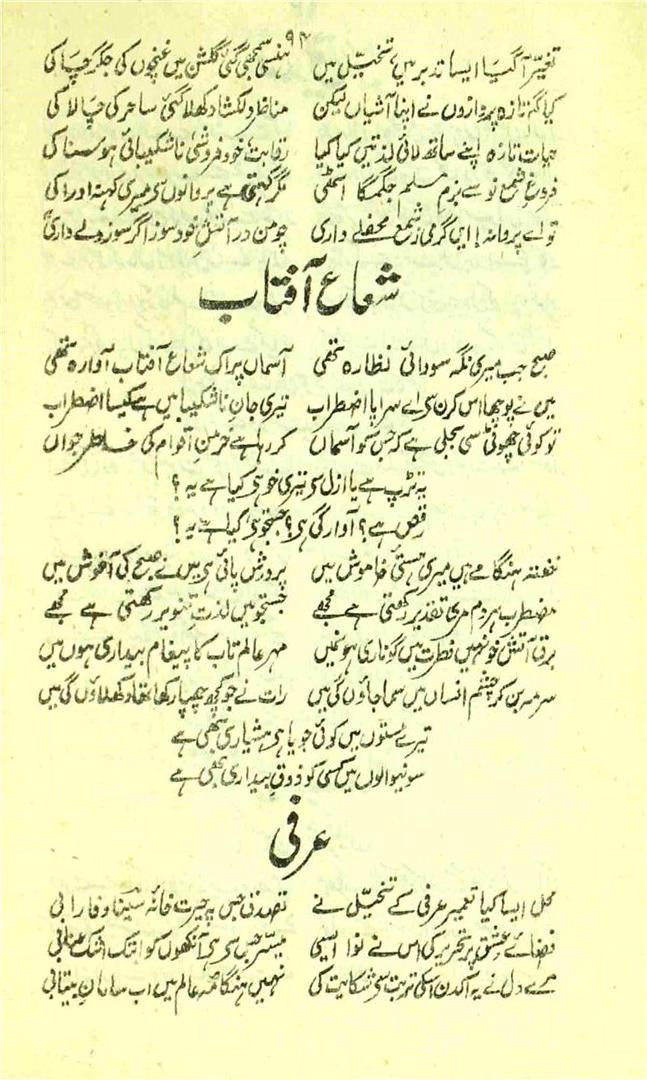 ۹۴
تغیّر آ گیا ایسا تدبر میں، تخیّل میں ہنسی سمجھی گئی گلشن میں غنچوں کی جگر چاکی
کیا گم تازہ پروازوں نے اپنا آشیاں لیکن مناظر دلکشا دکھلا گئی ساحر کی چالاکی
حیات تازہ اپنے ساتھ لائی لذتیں کیا کیا رقابت، خود فروشی، ناشکیبائی، ہوسناکی
فروغِ شمع نو سے بزم مسلم جگمگا اٹھی مگر کہتی ہے پروانوں سے میری کہنہ ادراکی
تو اے پروانہ! ایں گرمی ز شمع محفلے داری چو من در آتش خود سوز اگر سوز دلے داری
شعاع آفتاب
صبح جب میری نگہ سودائیِ نظارہ تھی آسماں پر اک شعاع آفتاب آوارہ تھی
میں نے پوچھا اس کرن سے اے سراپا اضطراب تیری جانِ ناشکیبا میں ہے کیسا اضطراب
تو کوئی چھوٹی سی بجلی ہے کہ جس کو آسماں کر رہا ہے خرمنِ اقوام کی خاطر جواں
یہ تڑپ ہے یا ازل سے تیری خو ہی کیا ہے یہ؟
رقص ہے؟ آوارگی ہی؟ جستجو ہی؟ کیا ہے یہ؟
خفتہ ہنگامے ہیں میری ہستیِ خاموش میں پرورش پائی ہی میں نے صبح کی آغوش میں
مضطرب ہر دم مری تقدیر رکھتی ہے مجھے جستجو میں لذتِ تنویر رکھتی ہے مجھے
برق آتش خو نہیں فطرت میں گو ناری ہوں میں مہر عالم تاب کا پیغام بیداری ہوں میں
سرمہ بن کر چشم انساں میں سما جاؤں گی میں رات نے جو کچھ چھپا رکھا تھا دکھلاؤں گی میں
تیرے مستوں میں کوئی جویاے ہشیاری بھی ہے
سونیوالوں میں کسی کو ذوقِ بیداری بھی ہے
عرفی
محل ایسا کیا تعمیر عرفی کے تخیّل نے تصدق جس پہ حیرت خانۂ سینا و فارابی
فضائے عشق پر تحریر کی اس نے نوا ایسی میسّر جس سے ہی آنکھوں کو اب تک اشک عنابی
مرے دل نے یہ اک دن اسکی تربت سے شکایت کی نہیں ہنگامۂ عالم میں اب سامانِ بیتابی